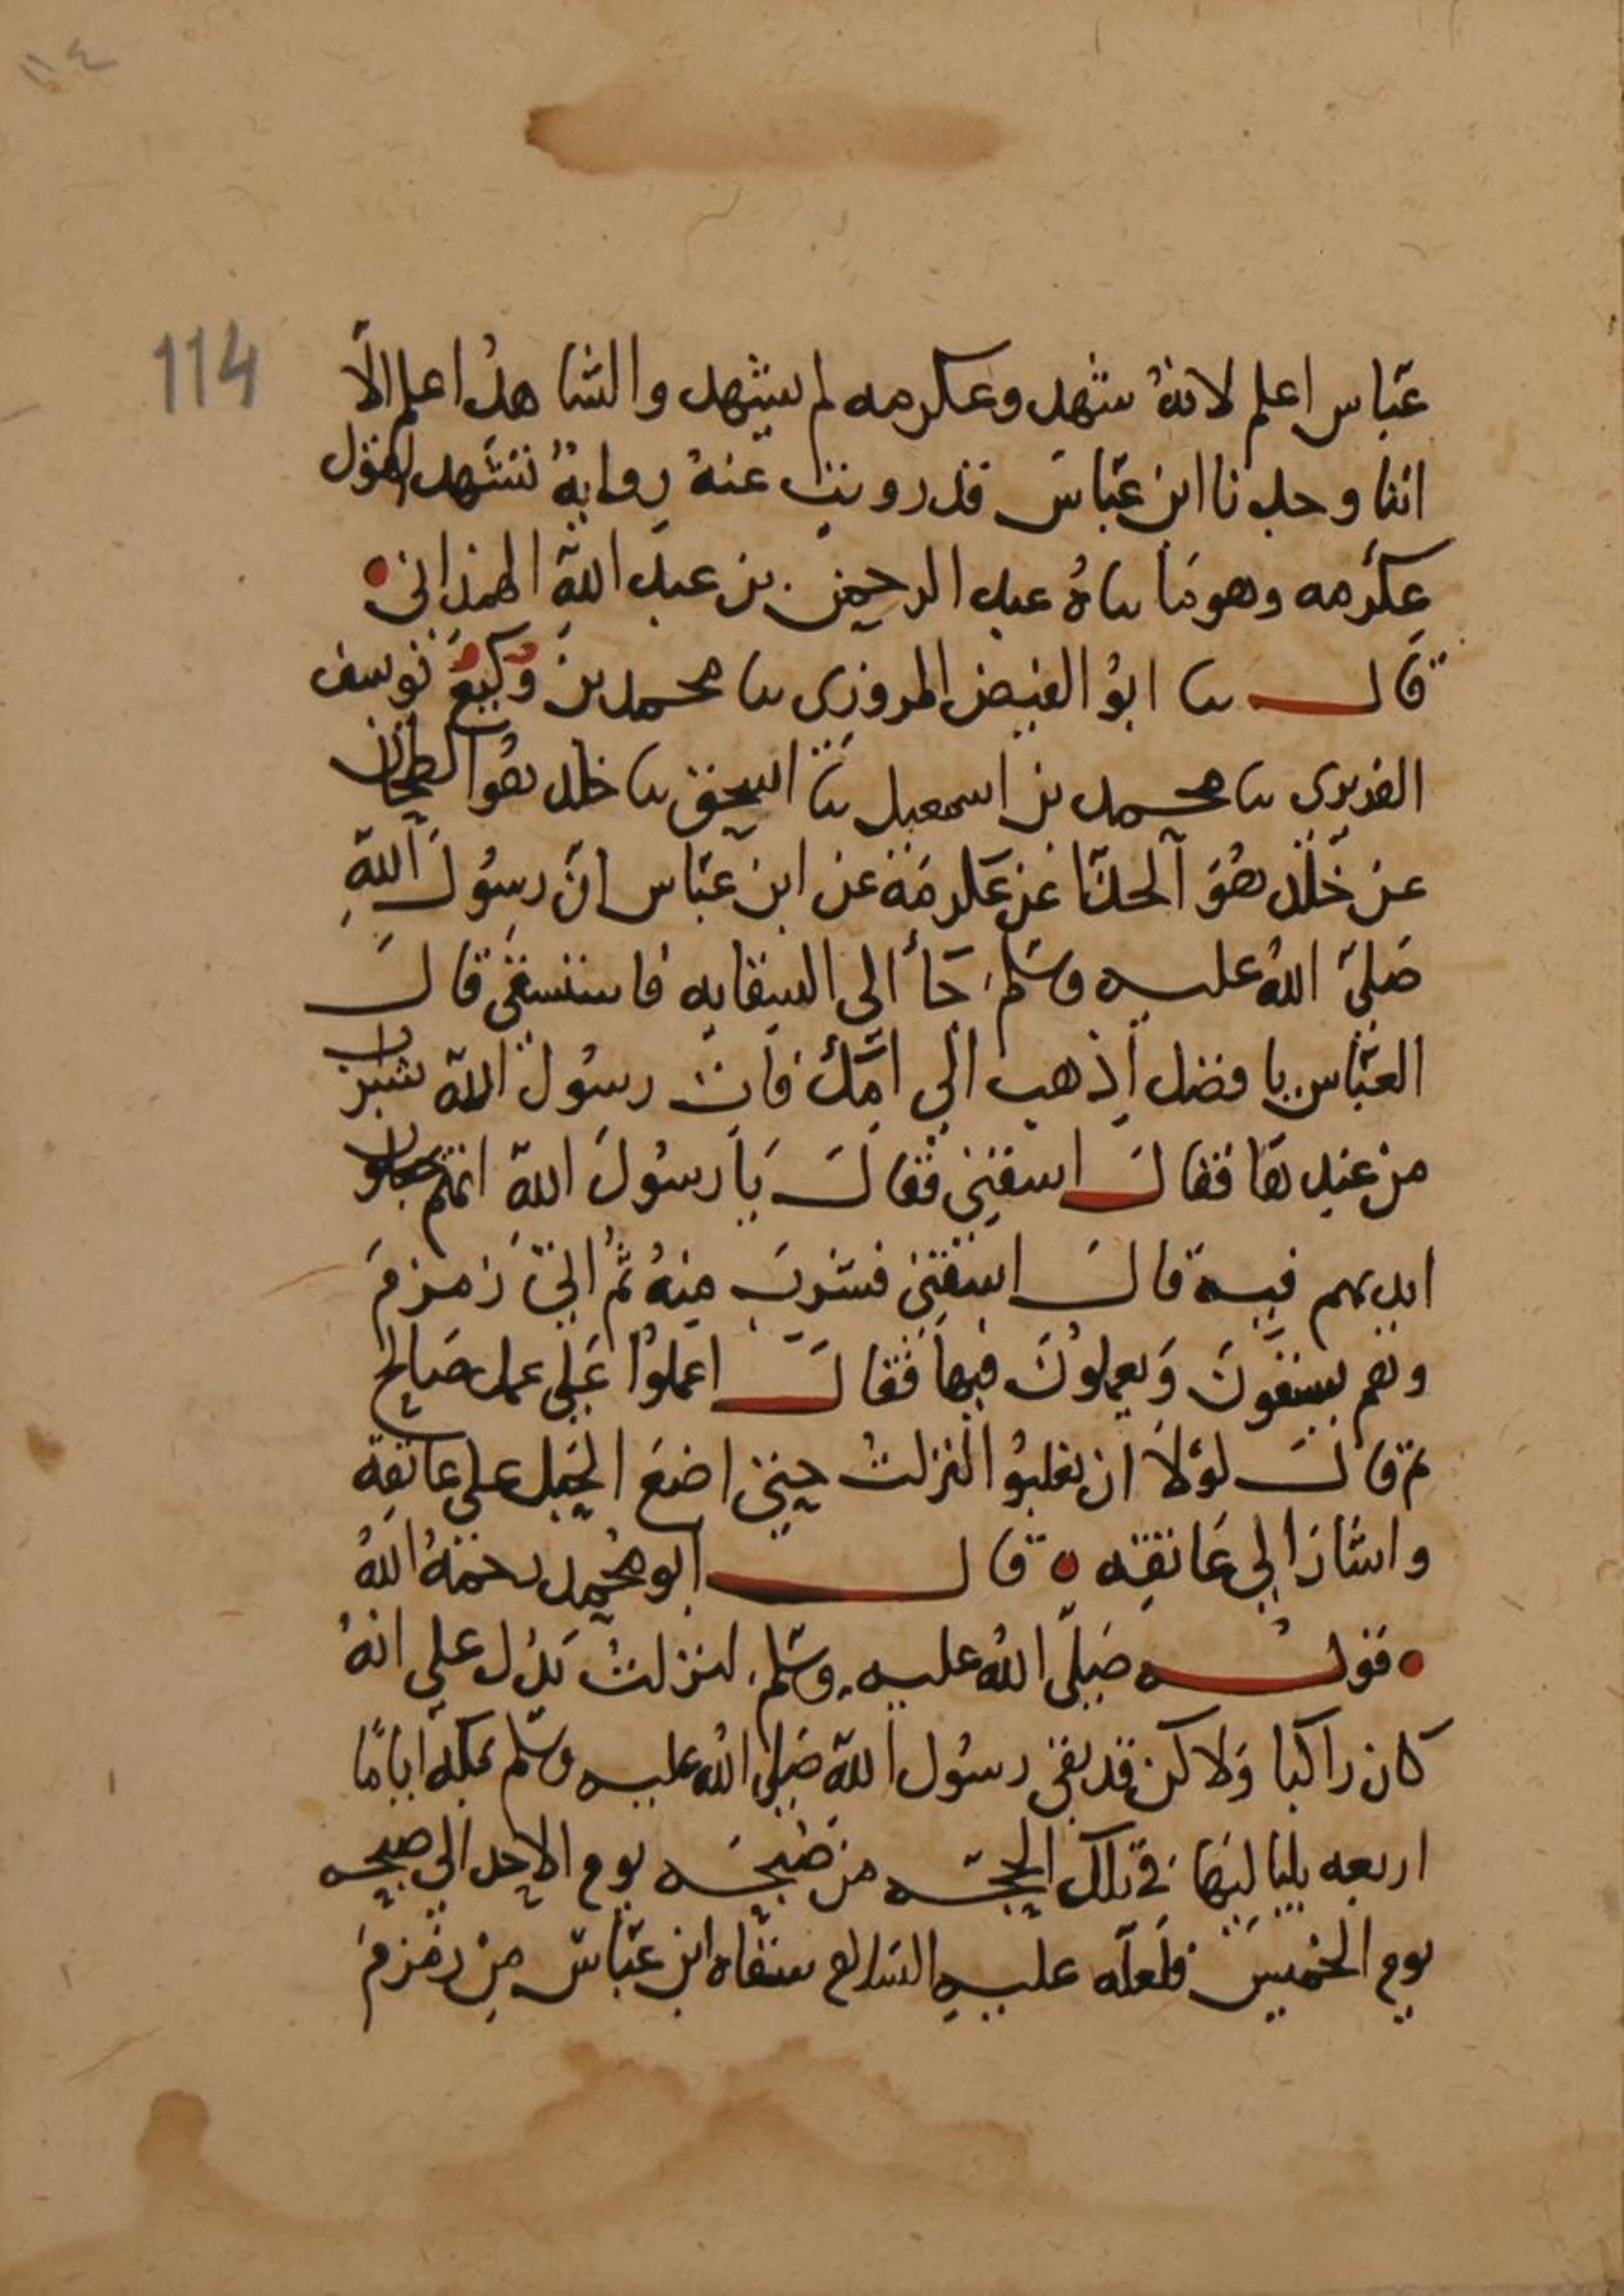 ١١٤
114
عَبّاس اعلم لانهُ شهد وعكرمه لم يشهد والشاهدُ اعلم الّا
اننا وجدنا ابن عبّاس قد رويت عنهُ روايةٌ تشهد لقول
عِكرمه وهو ما ساهُ عبد الرحمن بن عبد الله الهمداني
قال سا ابوُ الفيض المروزي سا محمد بن يوسف
الفربري سا محمد بن اسمعيل سا اسحق سا خلد هوا الطحان
عن خلد هُوَ الحذّا عن عكرمَة عن ابن عبّاس انّ رسُول اللهِ
صَلىّ اللهُ عليه وسَلم جَأ الى السقايه فاستسقى قال
العبّاس يا فضل اذهب الي امّك فات رسُول الله بشراب
من عندها فقال اسقنِي فقال يَا رسُولَ الله انهم يجعلون
ايديهم فيه قال اسقِني فشربَ مِنهُ ثُمّ اتيَ زمزمَ
وهم يسقوُنَ وَيعملونَ فيها فَقال اعملوُا عَلي عمل صَالح
ثم قال لوْلا ان تغلبوُا لنزلتُ حتي اضعَ الحَبل على عاتقِه
واشارَ الي عَاتقِه قال ابو محمد رحمَهُ اللهُ
قولـه صَلىّ اللهُ عليه وسَلّم لنزلتُ يَدُل على انهُ
كان راكبا وَلاكن قد بقى رسُول الله صَلىّ الله عليه وسَلّم بمكه اياماً
اربعه بلياليها في تلك الحجّه من صَبيحَه يوم الاحد الي صبيحه
يوم الخميسَ فلَعلّه عليه السَلام سقاه ابن عَبّاسّ مِن زمزمَ